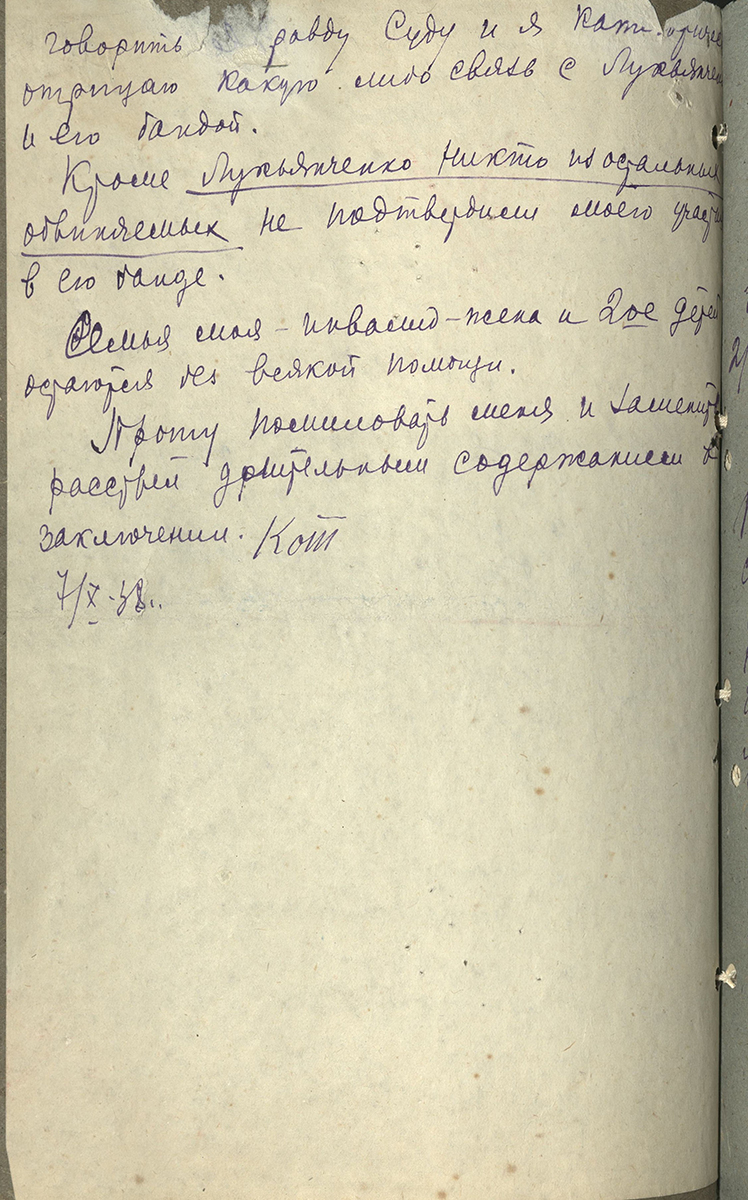 говорить правду Суду и я категориче
отрицаю какую либо связь с Лукьянчен
и его бандой.
Кроме Лукьянченко никто из остальных
обвиняемых не подтвердили моего участи
в его банде.
Семья моя - инвалид - жена и 2ое детей
остаются без всякой помощи.
Прошу помиловать меня и заменить
расстрел длительным содержанием в
заключении. Кот
7/X-38..